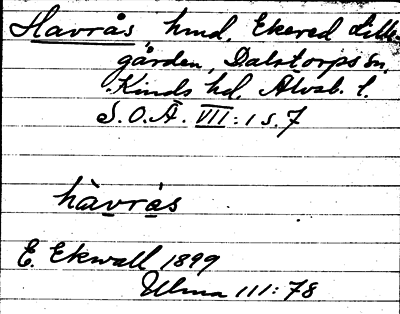 Havrås, hmd. Ekered Lille-
gården, Dalstorps sn,
Kinds hd, Älvsb. l.
S.O.Ä. VII:1 s. 7
hàvrás
E. Ekwall 1899
Ulma 111:78